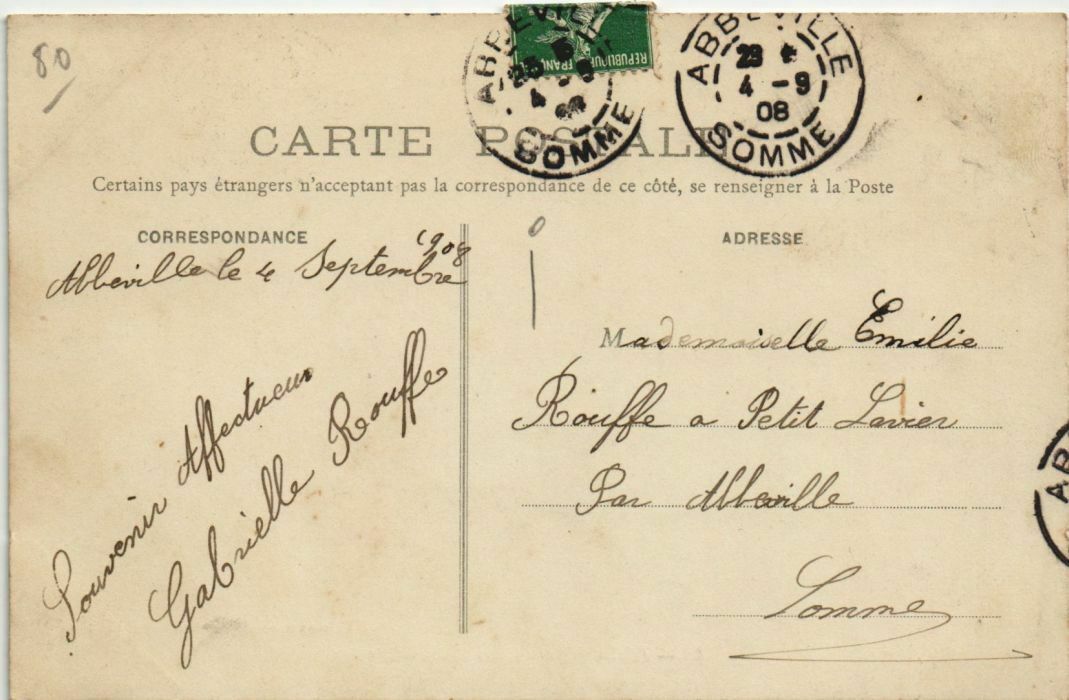 80
ABBEVILLE
4 - 9
SOMME
REPUBLIQUE FRANÇ
ABBEVILLE
4 - 9
08
SOMME
CARTE POSTALE
Certains pays étrangers n'acceptant pas la correspondance de ce côté, se renseigner à la Poste
CORRESPONDANCE
Abbeville le 4 Septembre 1908
Souvenir Affectueux
Gabrielle Rouffe
ADRESSE
Mademoiselle Emilie
Rouffe a Petit Lavier
Par Abbeville
Somme
AB